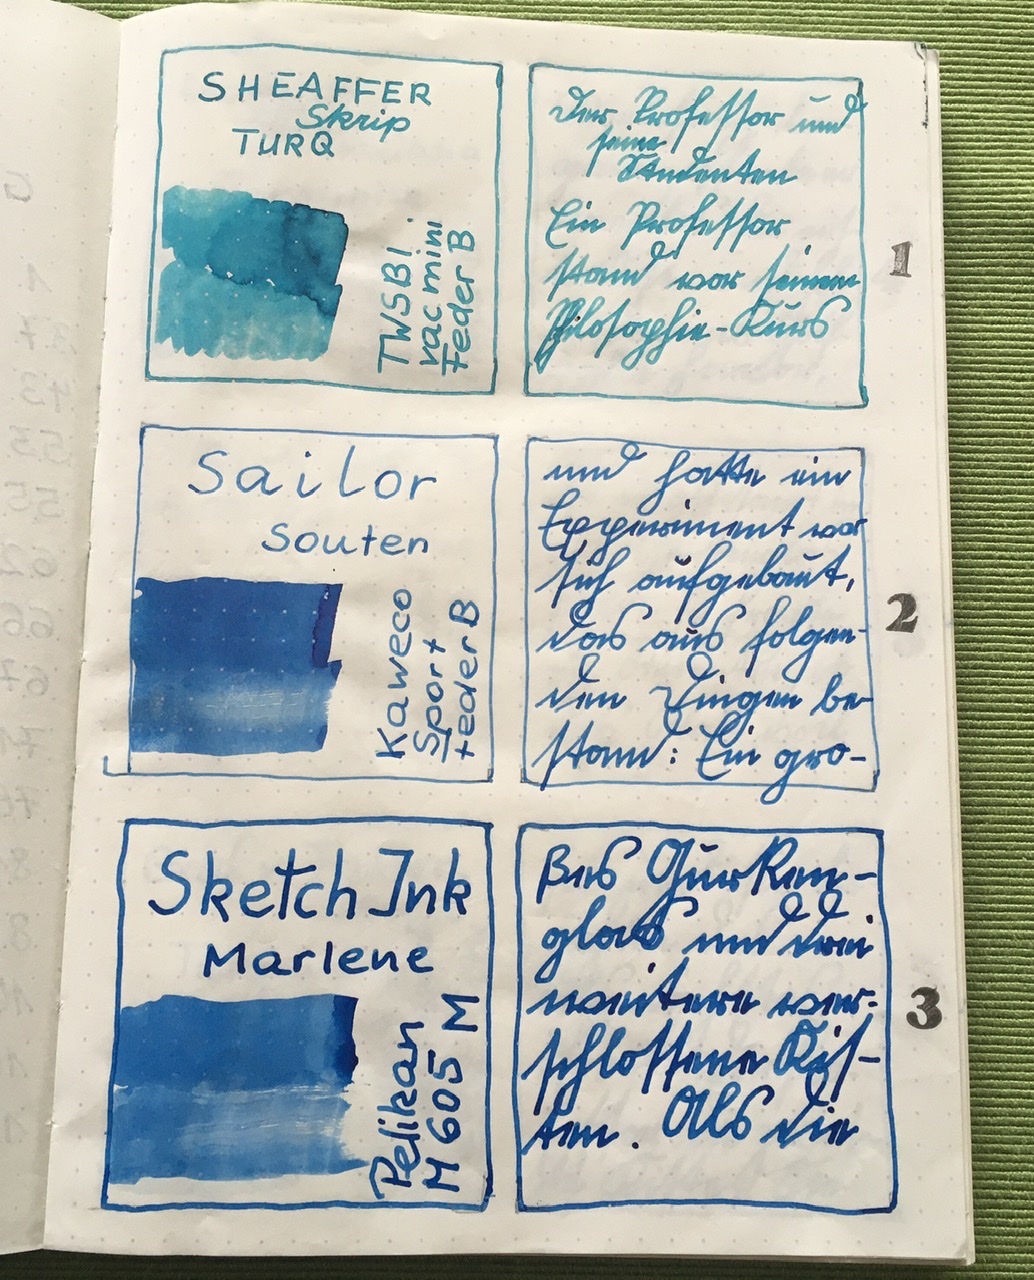 SHEAFFER
Skrip
TURQ
TWSBI
vac mini
Feder B
Der Professor und
seine
Studenten
Ein Professor
stand vor seinem
Philosophie-Kurs
1
Sailor
Souten
Kaweco
Sport
Feder B
und hatte ein
Experiment vor
sich aufgebaut,
das aus folgen-
den Dingen be-
stand: Ein gro-
2
Sketch Ink
Marlene
Pelikan
M 605 M
ßes Gurken-
glas und drei
weitere ver-
schlossene Kis-
ten. Als die
3